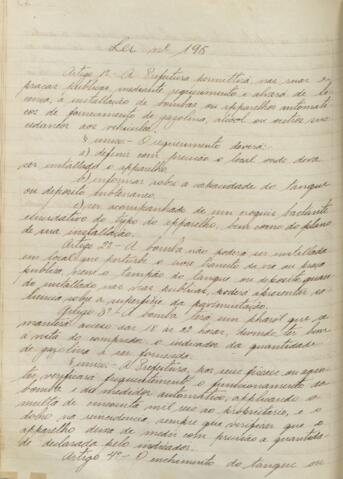 Lei nº 196
Artigo 1º - A Prefeitura permittirá, nas ruas e
praças publicas, mediante requerimento e alvará de li
cença, a installação de bombas ou apparelhos automati
cos de fornecimento de gazolina, alcool ou outros
aos vehiculos.
§ unico - O requerimento deverá:
a) definir com precisão o local onde deva
ser installado o apparelho.
b) informar sobre a capacidade do tanque
ou deposito subterraneo.
c) ser acompanhado de um croquis bastante
elucidativo do typo do apparelho, bem como do plano
de sua installação.
Artigo 2º - A bomba não poderá ser installada
em local que perturbe o livre transito da rua ou praça
publica, nem o tampão do tanque ou deposito quan
do installado nas vias publicas, poderá apresentar sa
liencia sobre a superficie da pavimentação.
Artigo 3º - A bomba terá um pharol que se
manterá acceso das 18 às 22 horas, devendo ter bem
á vista do comprador o indicador da quantidade
de gazolina a ser fornecida.
§ unico - A Prefeitura, por seus fiscaes ou agen
tes, verificará frequentemente o funccionamento da
bomba e do medidor automatico, applicando a
multa de cincoenta mil reis ao proprietario, e o
dobro na reincidencia, sempre que verificar que o
apparelho deixa de medir com precisão a quantida
de declarada pelo indicador.
Artigo 4º - O enchimento do tanque ou